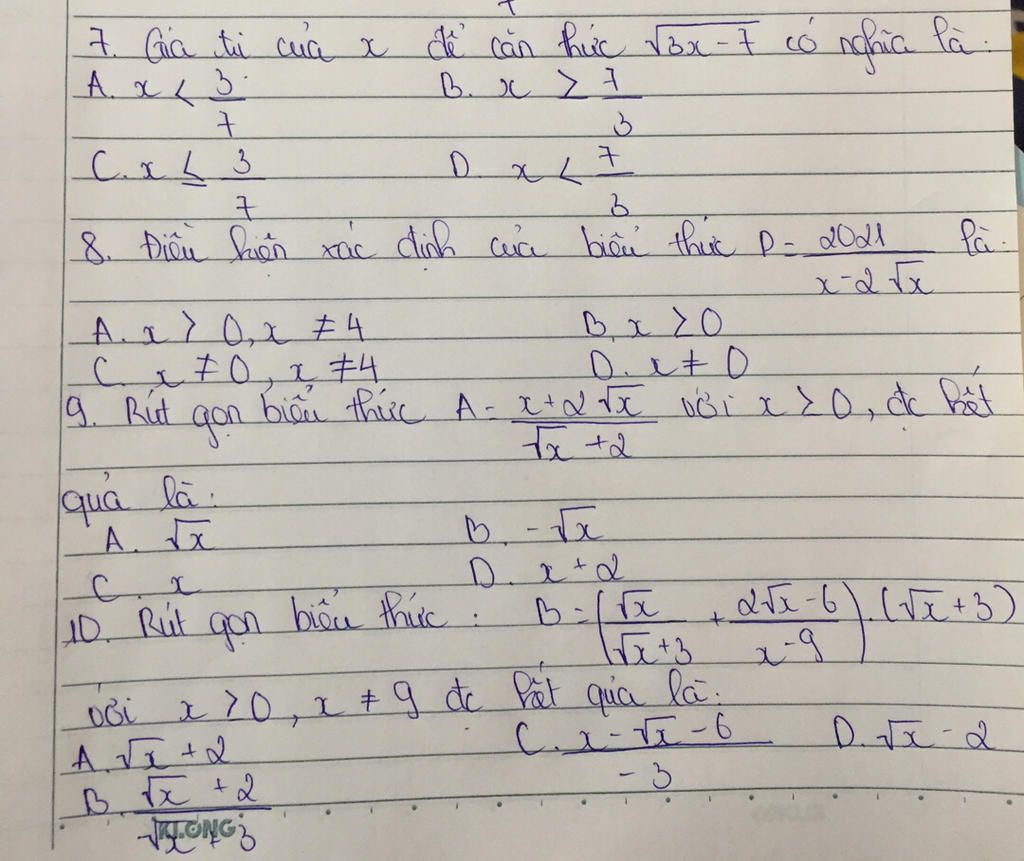 7. Giá trị của x để căn thức √(3x-7) có nghĩa là:
A. x < 3/7 B. x ≥ 7/3
C. x ≤ 3/7 D. x < 7/3
8. Điều kiện xác định của biểu thức P = 2021/(x-2√x) là:
A. x > 0, x ≠ 4 B. x ≥ 0
C. x ≠ 0, x ≠ 4 D. x ≠ 0
9. Rút gọn biểu thức A = (x+2√x)/(√x+2) với x ≥ 0, đc kết
quả là:
A. √x B. -√x
C. x D. x+2
10. Rút gọn biểu thức: B = (√x/(√x+3) + (2√x-6)/(x-9)).(√x+3)
với x > 0, x ≠ 9 đc kết quả là:
A. √x + 2 C. (x-√x-6)/-3 D. √x - 2
B. (√x+2)/(√x+3)
KLONG